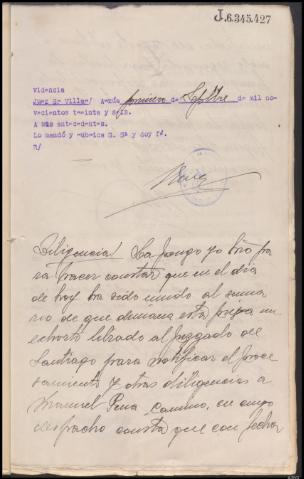 J.6.345.427
videncia
Juez Sr Villar/ Arzúa primero de Sepbre de mil no-
vecientos treinta y seis.
A sus antecedentes.
Lo mandó y rubrica S. Sª y doy fé.
R/
Diligencia/ La pongo yo Srio pa
ra hacer constar que en el dia
de hoy ha sido unido al suma
rio de que dimana esta pieza un
exhorto librado al Juzgado de
Santiago para notificar el proce
samiento y otras diligencias a
Manuel Pena Camino, en cuyo
despacho consta que con fecha